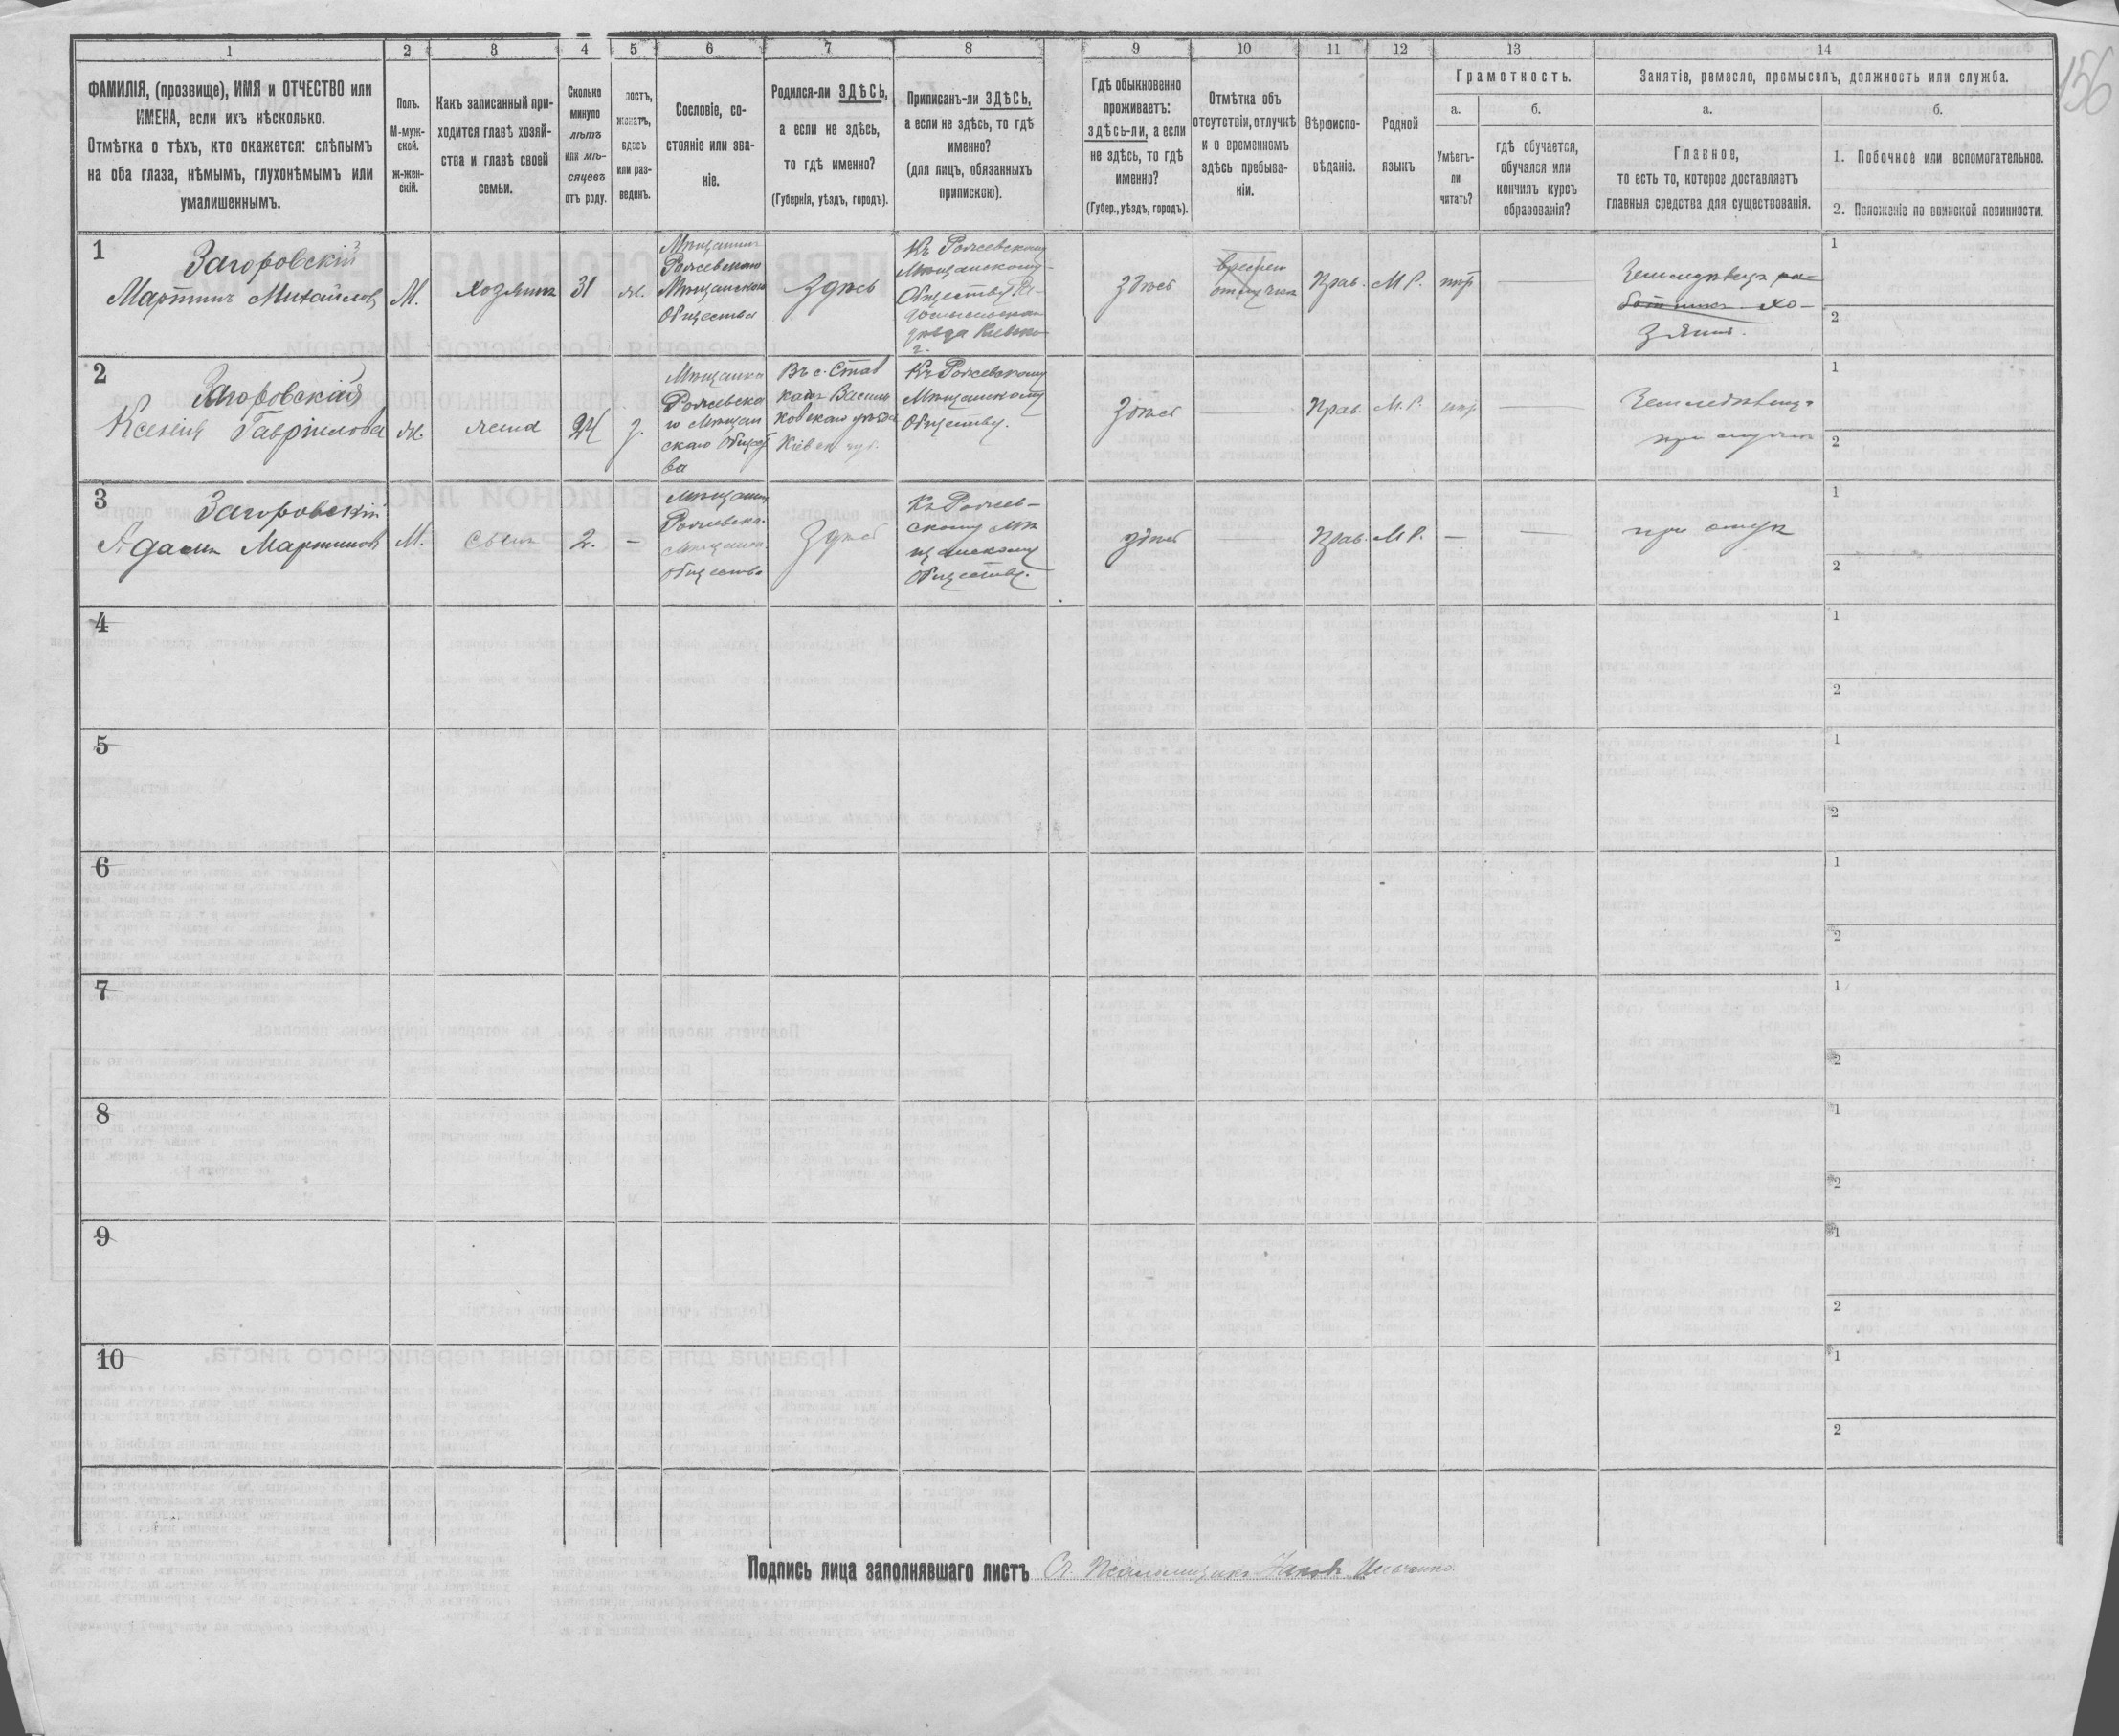 156
1 2 3 4 5 6 7 8 9 10 11 12 13 14
ФАМИЛІЯ, (прозвище), ИМЯ и ОТЧЕСТВО или
ИМЕНА, если ихъ нѣсколько.
Отмѣтка о тѣхъ, кто окажется: слѣпымъ
на оба глаза, нѣмымъ, глухонѣмымъ или
умалишеннымъ.
Полъ.
М-муж-
ской.
ж-жен-
скій.
Какъ записанный при-
ходится главѣ хозяй-
ства и главѣ своей
семьи.
Сколько
минуло
лѣтъ
или мѣ-
сяцевъ
отъ роду.
лостъ,
женатъ,
вдовъ
или раз-
веденъ.
Сословіе, со-
стояніе или зва-
ніе.
Родился-ли ЗДѢСЬ,
а если не здѣсь,
то гдѣ именно?
(Губернія, уѣздъ, городъ).
Приписанъ-ли ЗДѢСЬ,
а если не здѣсь, то гдѣ
именно?
(для лицъ, обязанныхъ
припискою).
Гдѣ обыкновенно
проживаетъ:
здѣсь-ли, а если
не здѣсь, то гдѣ
именно?
(Губер., уѣздъ, городъ).
Отмѣтка объ
отсутствіи, отлучкѣ
и о временномъ
здѣсь пребыва-
ніи.
Вѣроиспо-
вѣданіе.
Родной
языкъ
Грамотность.
а.
Умѣетъ-
ли
читать?
б.
гдѣ обучается,
обучался или
кончилъ курсъ
образованія?
Занятіе, ремесло, промыселъ, должность или служба.
а.
Главное,
то есть то, которое доставляетъ
главныя средства для существованія.
б.
1. Побочное или вспомогательное.
2. Положеніе по воинской повинности.
1
Загоровскій
Мартинъ Михайловъ
М.
хозяинъ
31
ж.
Мѣщанинъ
Рожевскаго
Мѣщанскаго
Общества
Здѣсь
Къ Рожевскому
Мѣщанскому
Обществу
уѣзда
здѣсь
Прав.
М Р.
Земледѣлецъ ра-
ботникъ хо-
зяинъ.
1
2
2
Загоровская
Ксенія Гавріилова
ж.
жена
24
з.
Мѣщанка
Рожевска
го Мѣщан
скаго Общест
ва
Въ с. Став
кахъ Васил
ковскаго уѣзда
Кіевск. губ.
Къ Рожевскому
Мѣщанскому
Обществу.
Здѣсь
Прав.
М. Р.
Земледѣлецъ
при
1
2
3
Загоровскій
Адамъ Мартиновъ
М.
сынъ
2.
–
Мѣщанинъ
Рожевска.
Мѣщанск.
Общества
Здѣсь
Къ Рожев-
скому Мѣ
щанскому
Обществу.
здѣсь
Прав.
М Р.
–
при отцѣ
1
2
4
1
2
5
1
2
6
1
2
7
1
2
8
1
2
9
1
2
10
1
2
Подпись лица заполнявшаго листъ Псаломщикъ Яковъ